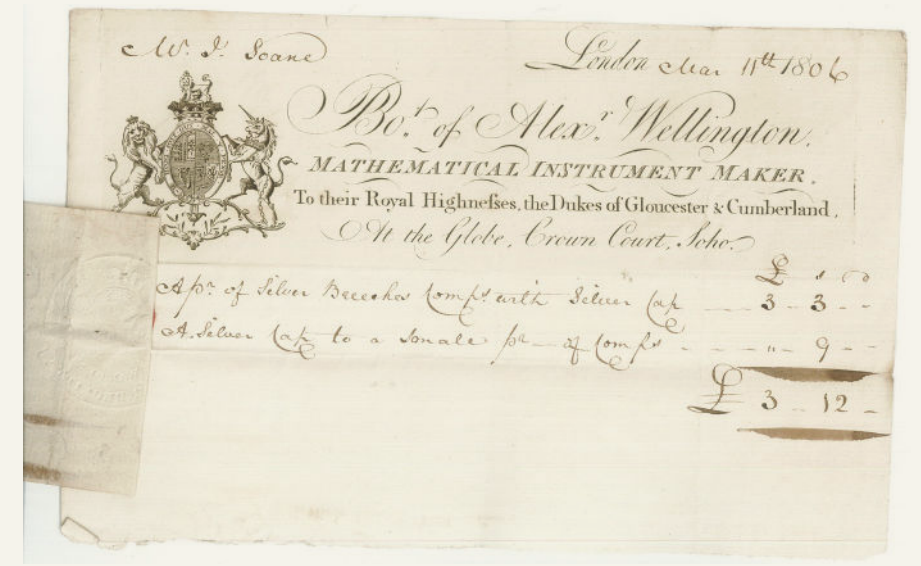 Mr. J. Soane
London Mar 11th 1806
Bot. of Alexr. Wellington.
MATHEMATICAL INSTRUMENT MAKER.
To their Royal Highneſses, the Dukes of Gloucester & Cumberland,
At the Globe, Crown Court, Soho.
£ s d
A pr. of Silver Beeches Comps. with Silver Cap 3 - 3 - -
A Silver Cap to a smale pr - of Comps - - - " - 9 - -
£ 3 - 12 -